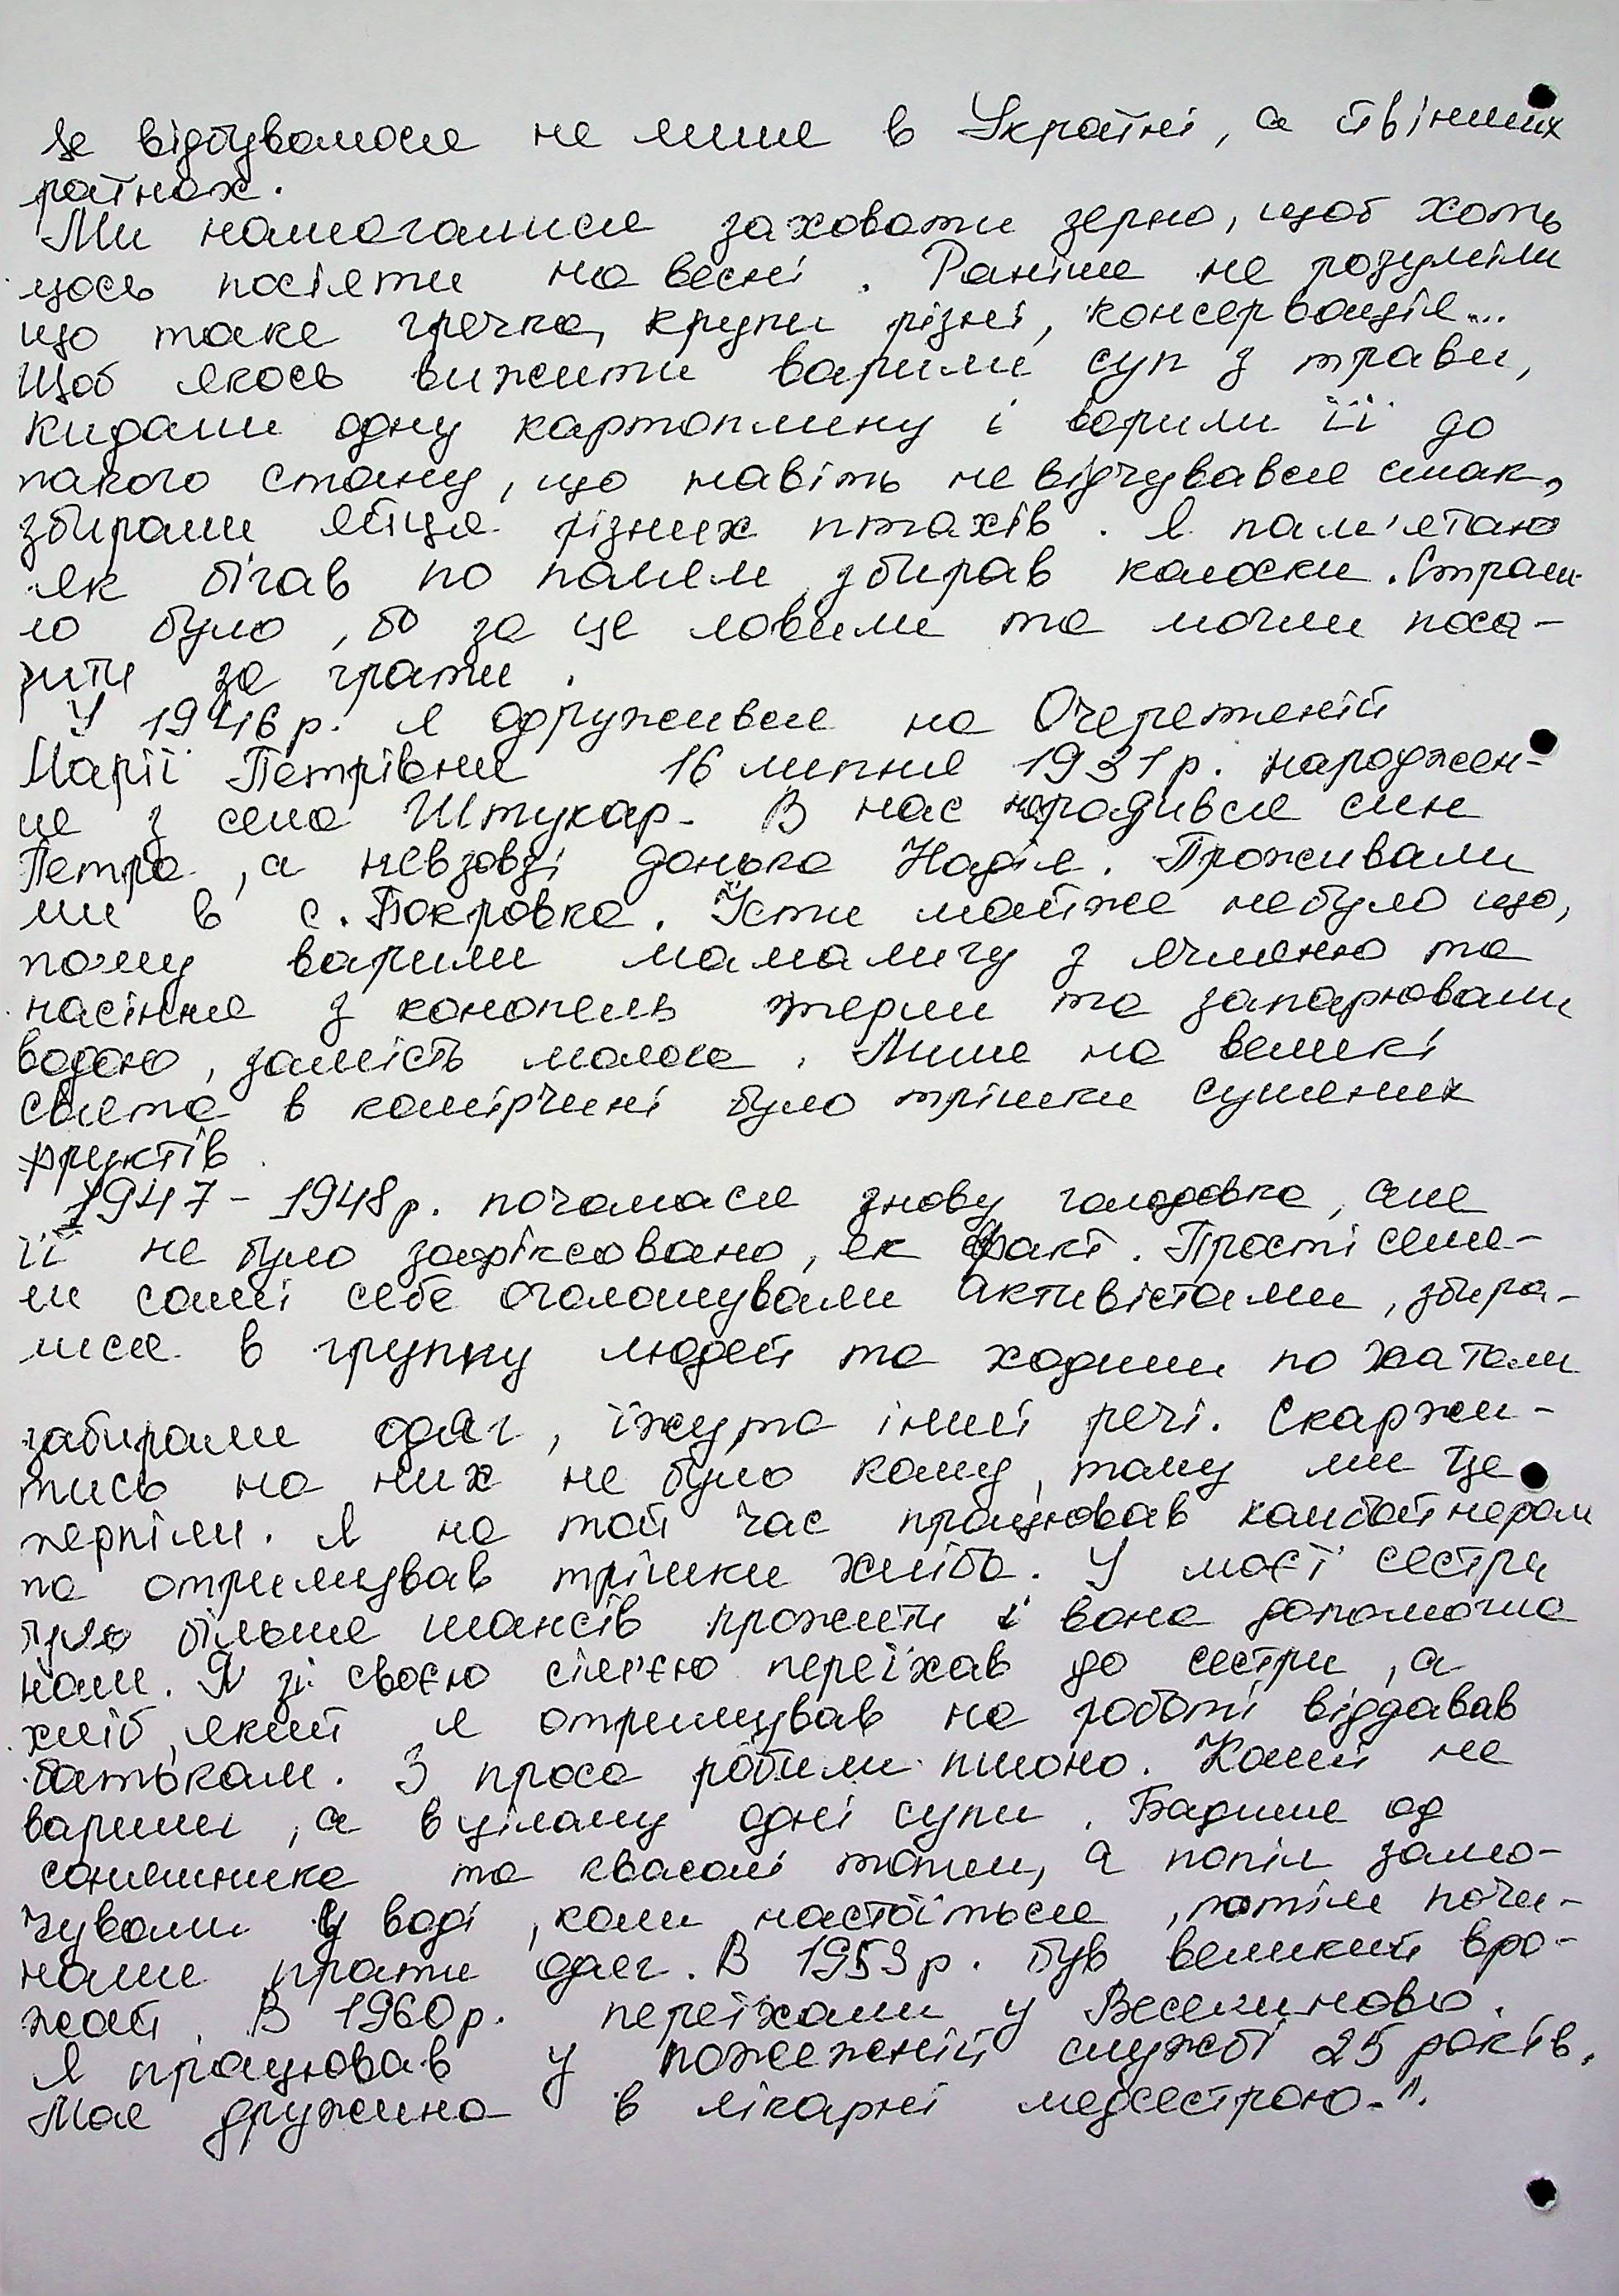 Це відбувалося не лише в Україні, а й в інших
раїнах.
Ми намагалися заховати зерно, щоб хоть
щось посіяти на весні. Раніше не розуміли
що таке гречка, крупи різні, консервація...
Щоб якось вижити варили суп з трави,
кидали одну картоплину і варили її до
такого стану, що навіть не відчувався смак,
збирали яйця різних птахів. Я пам'ятаю
як бігав по полям, збирав колоски. Страш-
но було, бо за це ловили та могли поса-
дити за грати.
У 1946 р. я одружився на Очеретеній
Марії Петрівни 16 липня 1931 р. народжен-
ня з села Штукар. В нас народився син
Петро, а невзовзі донька Надія. Проживали
ми в с. Покровка. Їсти майже не було що,
тому варили мамалигу з ячменю та
насіння з конопель терли та запарювали
водою, замість молока. Лише на великі
свята в комірчині було трішки сушених
фруктів.
1947 - 1948 р. почалася знову голодовка, але
її не було зафіксовано, як факт. Прості селя-
ни самі себе оголошували активістами, збира-
лися в групку людей та ходили по хатам
забирали одяг, їжу та інші речі. Скаржи-
тись на них не було кому, тому ми це
терпіли. Я на той час працював комбайнером
та отримував трішки хліба. У моєї сестри
було більше шансів прожити і вона допомогла
нам. Я зі своєю сім'єю переїхав до сестри, а
хліб, який я отримував на роботі віддавав
батькам. З проса робили пшоно. Каші не
варили, а в цілому одні супи. Бадилля од
соняшника та квасолі топили, а попіл замо-
чували у воді, коли настоїться, потім почи-
нали прати одяг. В 1953 р. був великий вро-
жай. В 1960 р. переїхали у Веселиново.
Я працював у пожежній службі 25 років.
Моя дружина в лікарні медсестрою.".